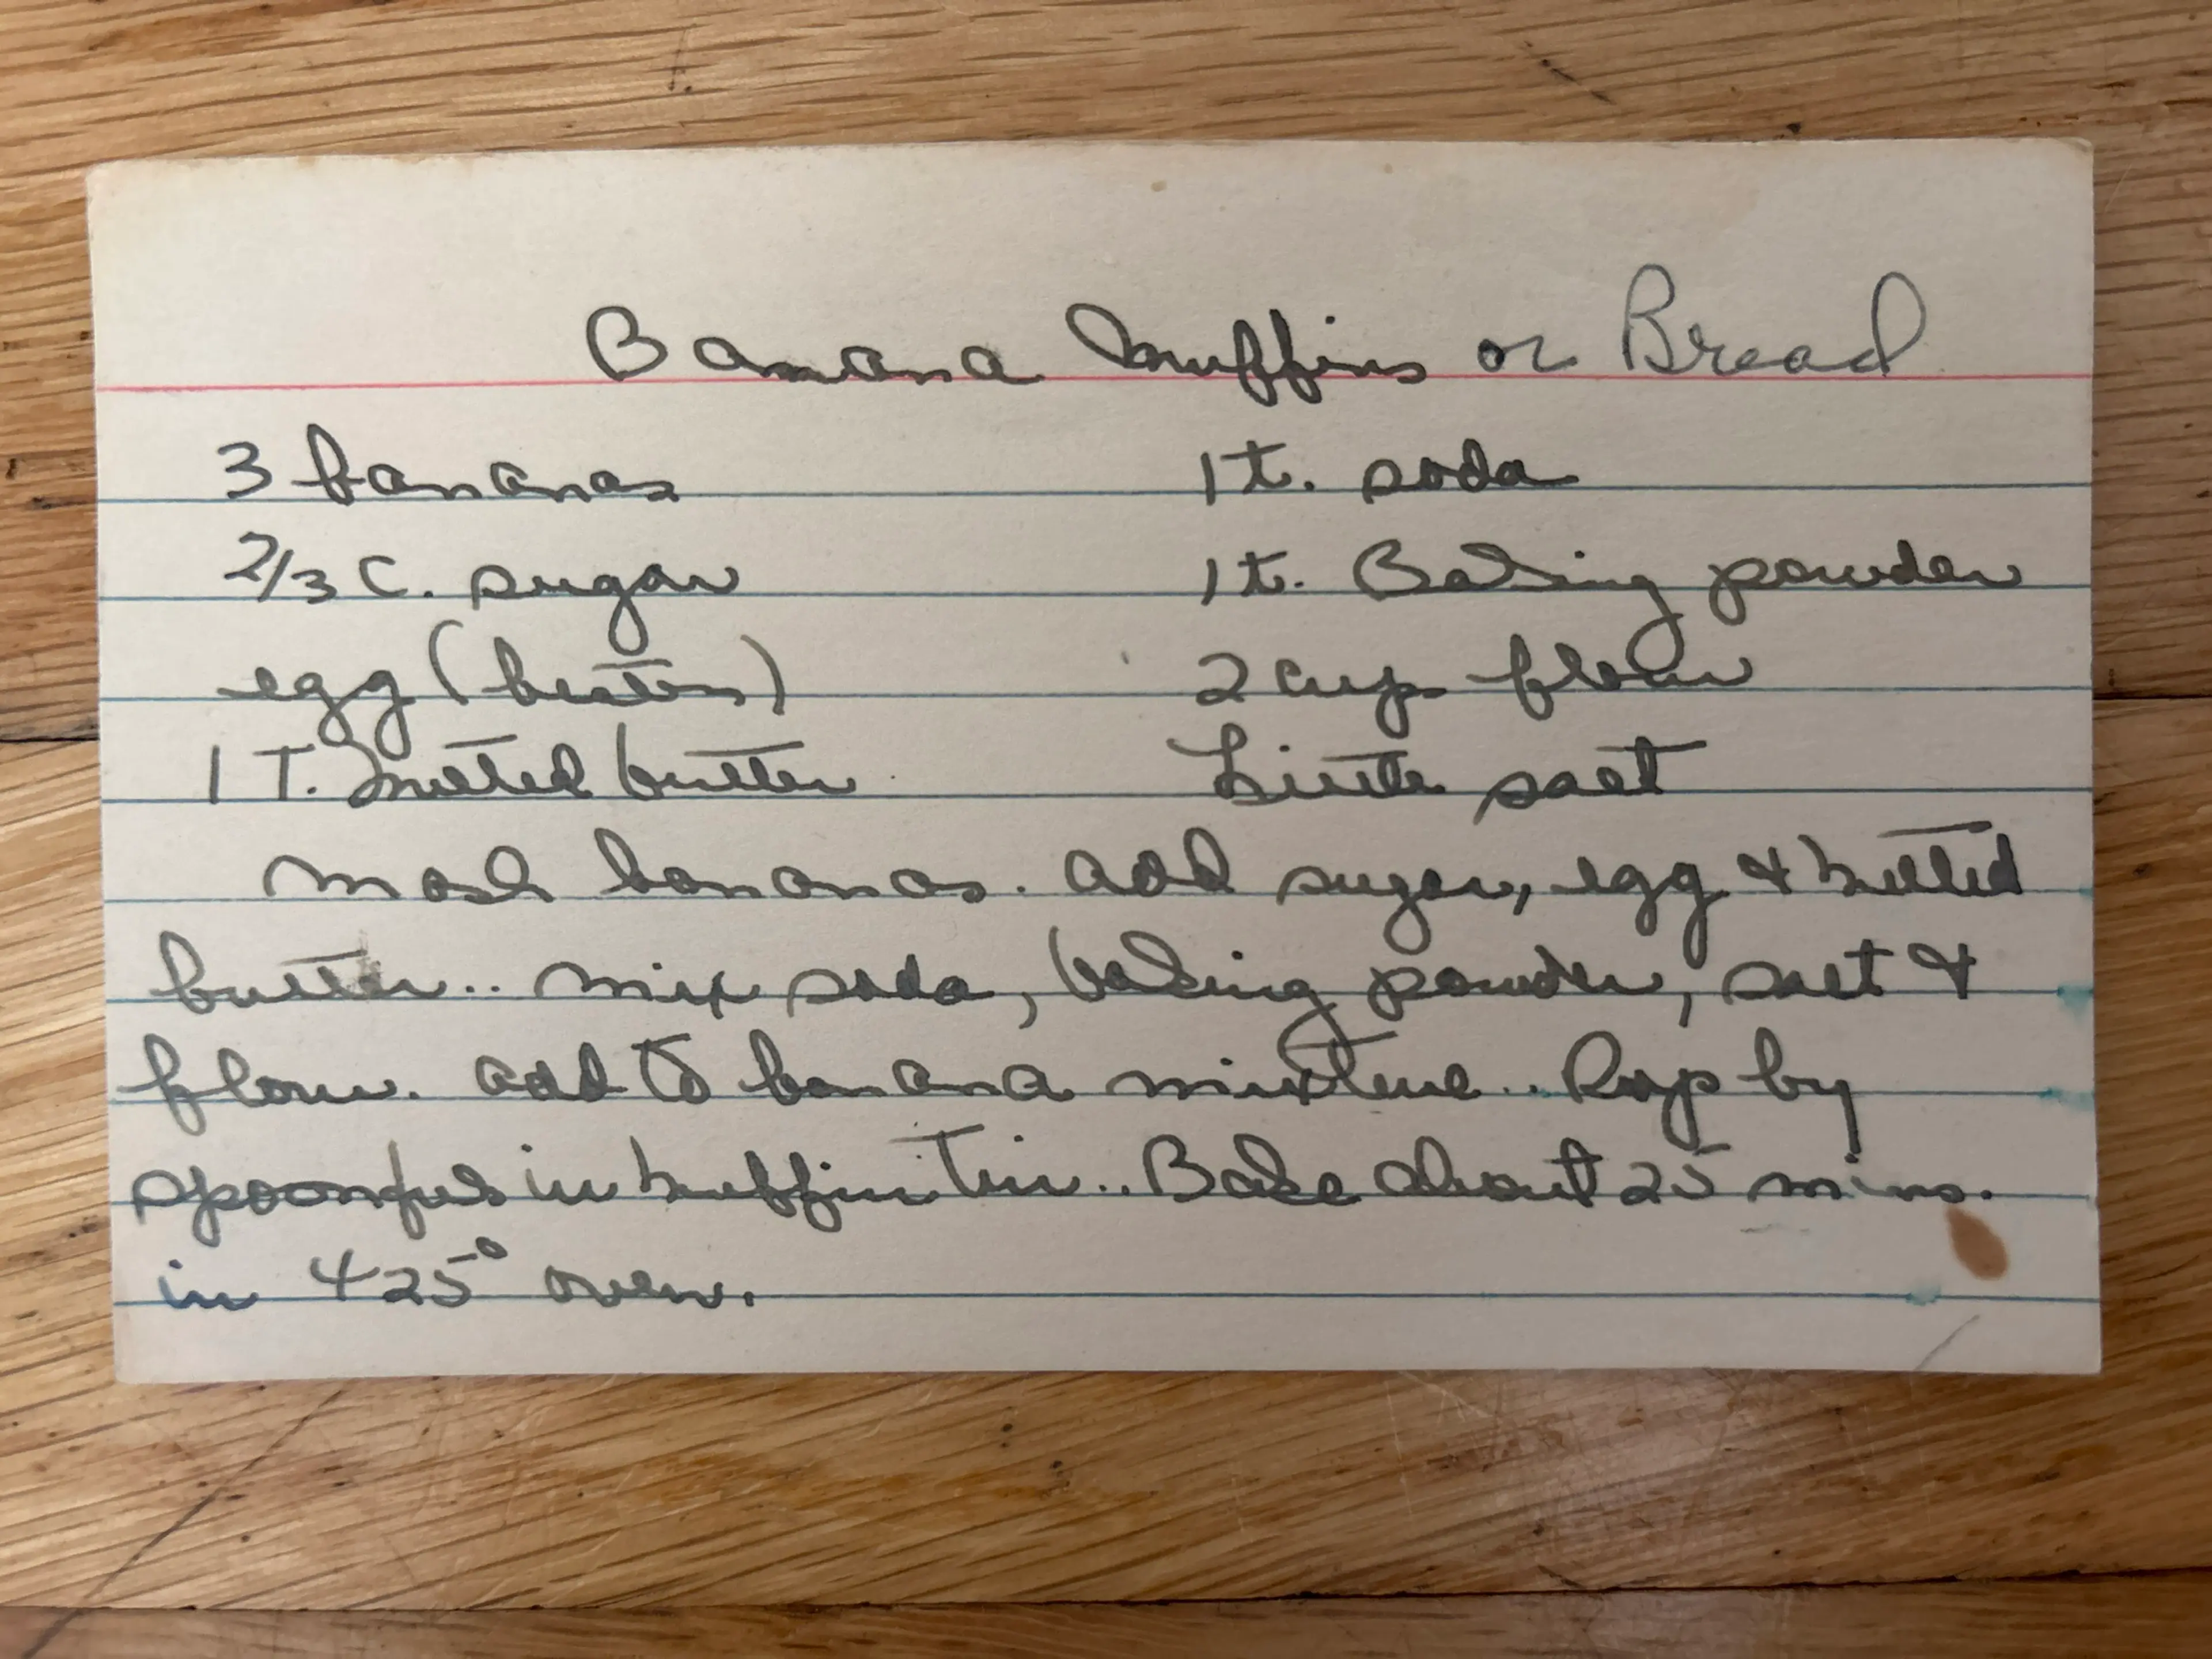 Banana Muffins or Bread
3 bananas 1 t. soda
2/3 C. sugar 1 t. Baking powder
egg (beaten) 2 cups flour
1 T. melted butter Little salt
Mash bananas. Add sugar, egg & melted
butter.. Mix soda, baking powder, salt &
flour. Add to banana mixture.. Drop by
spoonfuls in muffin tin.. Bake about 25 mins.
in 425° oven.